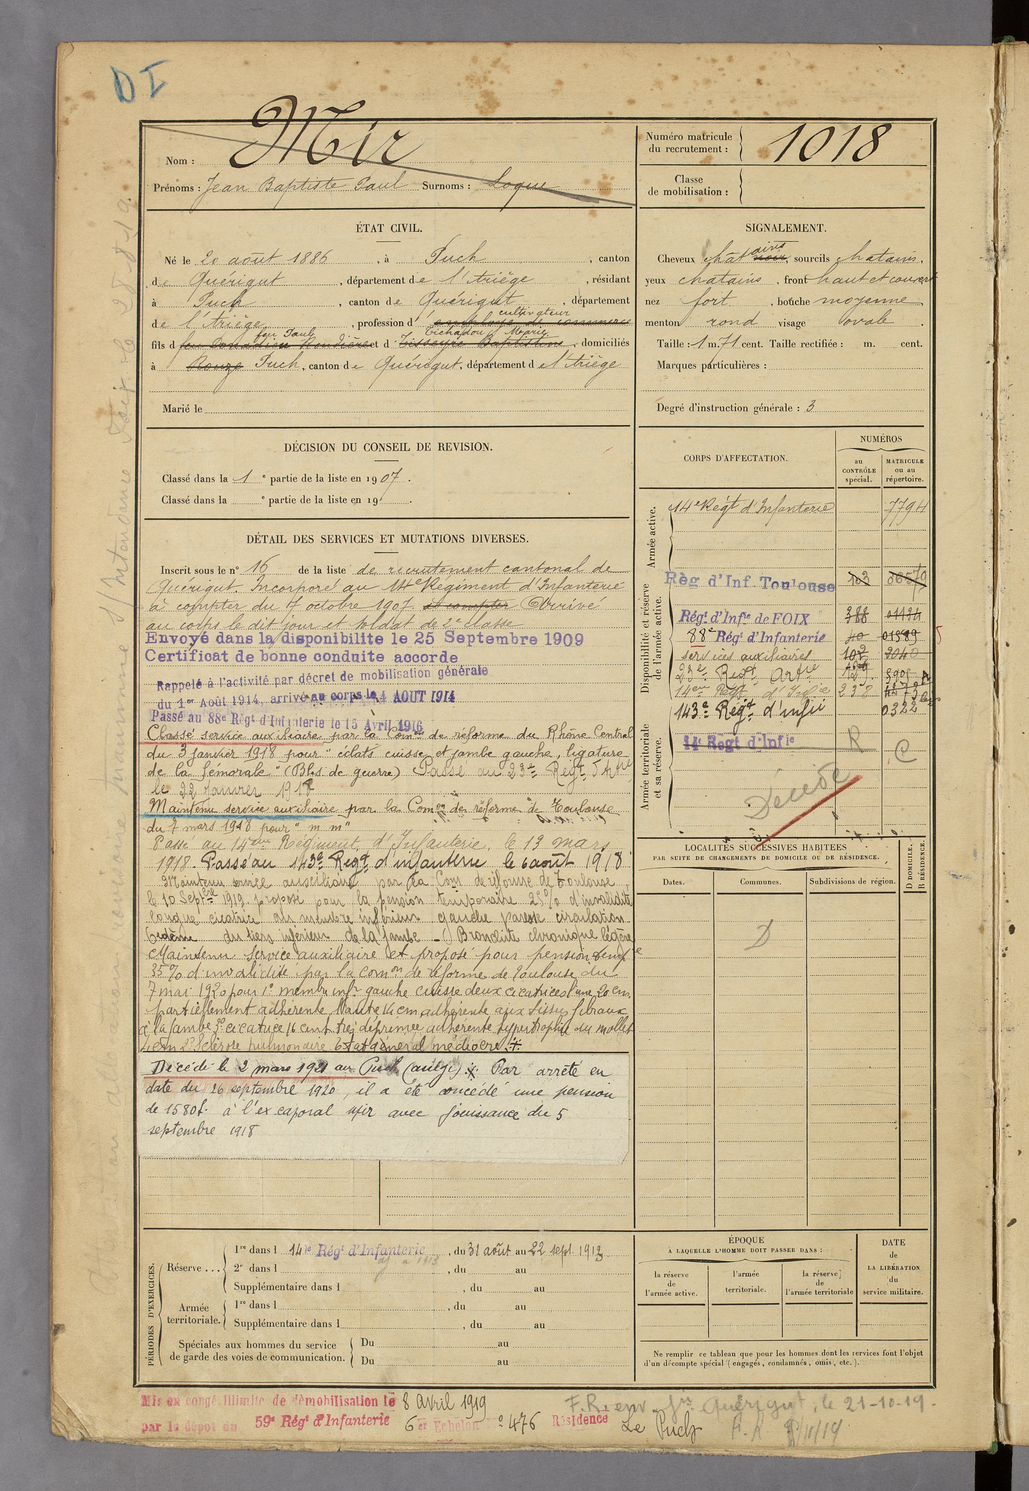 D I
Nom : Mir
Prénoms : Jean Baptiste Paul Surnoms : Loque
Numéro matricule
du recrutement : 1018
Classe
de mobilisation :
ÉTAT CIVIL.
Né le 20 août 1886, à Puch, canton
de Quérigut, département de l'Ariège, résidant
à Puch, canton de Quérigut, département
de l'Ariège, profession d' employé de commerce cultivateur
fils d feu Paul et d Marie, domiciliés
à Rouze Puch, canton de Quérigut, département de l'Ariège
Marié le
SIGNALEMENT.
Cheveux chatains, sourcils chatains,
yeux chatains, front haut et couvert
nez fort, bouche moyenne
menton rond visage ovale.
Taille : 1 m. 71 cent. Taille rectifiée : m. cent.
Marques particulières :
Degré d'instruction générale : 3
DÉCISION DU CONSEIL DE REVISION.
Classé dans la 1e partie de la liste en 1907.
Classé dans la e partie de la liste en 19
DÉTAIL DES SERVICES ET MUTATIONS DIVERSES.
Inscrit sous le n° 16 de la liste de recrutement cantonal de
Quérigut. Incorporé au 14e Régiment d'Infanterie
à compter du 7 octobre 1907 Arrivé
au corps le dit jour et soldat de 2e classe
Envoyé dans la disponibilite le 25 Septembre 1909
Certificat de bonne conduite accorde
Rappelé à l'activité par décret de mobilisation générale
du 1er Août 1914, arrivé au corps le 4 AOUT 1914
Passé au 88e Régt d'Infanterie le 15 Avril 1916
Classé service auxiliaire par la Comon de réforme du Rhône Central
du 3 janvier 1918 pour "éclats cuisse et jambe gauche, ligature
de la fémorale" (Bles de guerre) Passé au 23e Regt d'Artie
le 22 Janvier 1918
Maintenu service auxiliaire par la Comon de réforme de Toulouse
du 7 mars 1918 pour "m m"
Passé au 14eme Régiment d'Infanterie, le 13 mars
1918. Passé au 143e Regt d'infanterie le 6 août 1918
Maintenu service auxiliaire par la Com de réforme de Toulouse
le 10 Septbre 1919 proposé pour la pension temporaire 25% d'invalidité
longue cicatrice du membre inférieur gauche parésie circulation
oedème du tiers inférieur de la jambe - () Bronchite chronique légère
Maintenu service auxiliaire et proposé pour pension temp
35% d'invalidité par la Comon de réforme de Toulouse du
7 mai 1920 pour 1° membre infr gauche cuisse deux cicatrices l'une 20 cm.
partiellement adhérente, l'autre 14 cm adhérente aux tissus fibreux
à la jambe 1° cicatrice 16 cent. très déprimée adhérente hypertrophie du mollet
2° Sclérose pulmonaire Etat général médiocre
Décédé le 2 mars 1921 au Puch (ariège). Par arrêté en
date du 26 septembre 1920, il a été concédé une pension
de 1580f. à l'ex caporal Mir avec jouissance du 5
septembre 1918
CORPS D'AFFECTATION.
NUMÉROS
au
CONTRÔLE
spécial.
MATRICULE
ou au
répertoire.
Armée active.
14e Régt d'Infanterie 7794
Disponibilité et réserve
de l'armée active.
Règ d'Inf. Toulouse 103
Régt d'Infie de FOIX 388 01134
88e Régt d'Infanterie
services auxiliaires 102 2040
23e Regt Artie
14em Régt d'Infie
143e Régt d'infie 0322
Armée territoriale
et sa réserve.
14 Regt d'Infie R C
Décédé
LOCALITÉS SUCCESSIVES HABITÉES
PAR SUITE DE CHANGEMENTS DE DOMICILE OU DE RÉSIDENCE.
D DOMICILE.
R RÉSIDENCE.
Dates. Communes. Subdivisions de région.
D
PÉRIODES D'EXERCICES.
Réserve ... 1re dans l 14e Régt d'Infanterie, du 31 août au 22 sept. 1913
2e dans l , du au
Supplémentaire dans l , du au
Armée
territoriale. 1re dans l , du au
Supplémentaire dans l , du au
Spéciales aux hommes du service
de garde des voies de communication. Du au
Du au
ÉPOQUE
À LAQUELLE L'HOMME DOIT PASSER DANS :
la réserve
de
l'armée active.
l'armée
territoriale.
la réserve
de
l'armée territoriale
DATE
de
LA LIBÉRATION
du
service militaire.
Ne remplir ce tableau que pour les hommes dont les services font l'objet
d'un décompte spécial (engagés, condamnés, omis, etc.).
Mis en congé illimité de démobilisation le 8 Avril 1919
par le dépôt du 59e Rég d'Infanterie 6e Echelon n° 476 Résidence Le Puch
Quérigut, le 21-10-19.